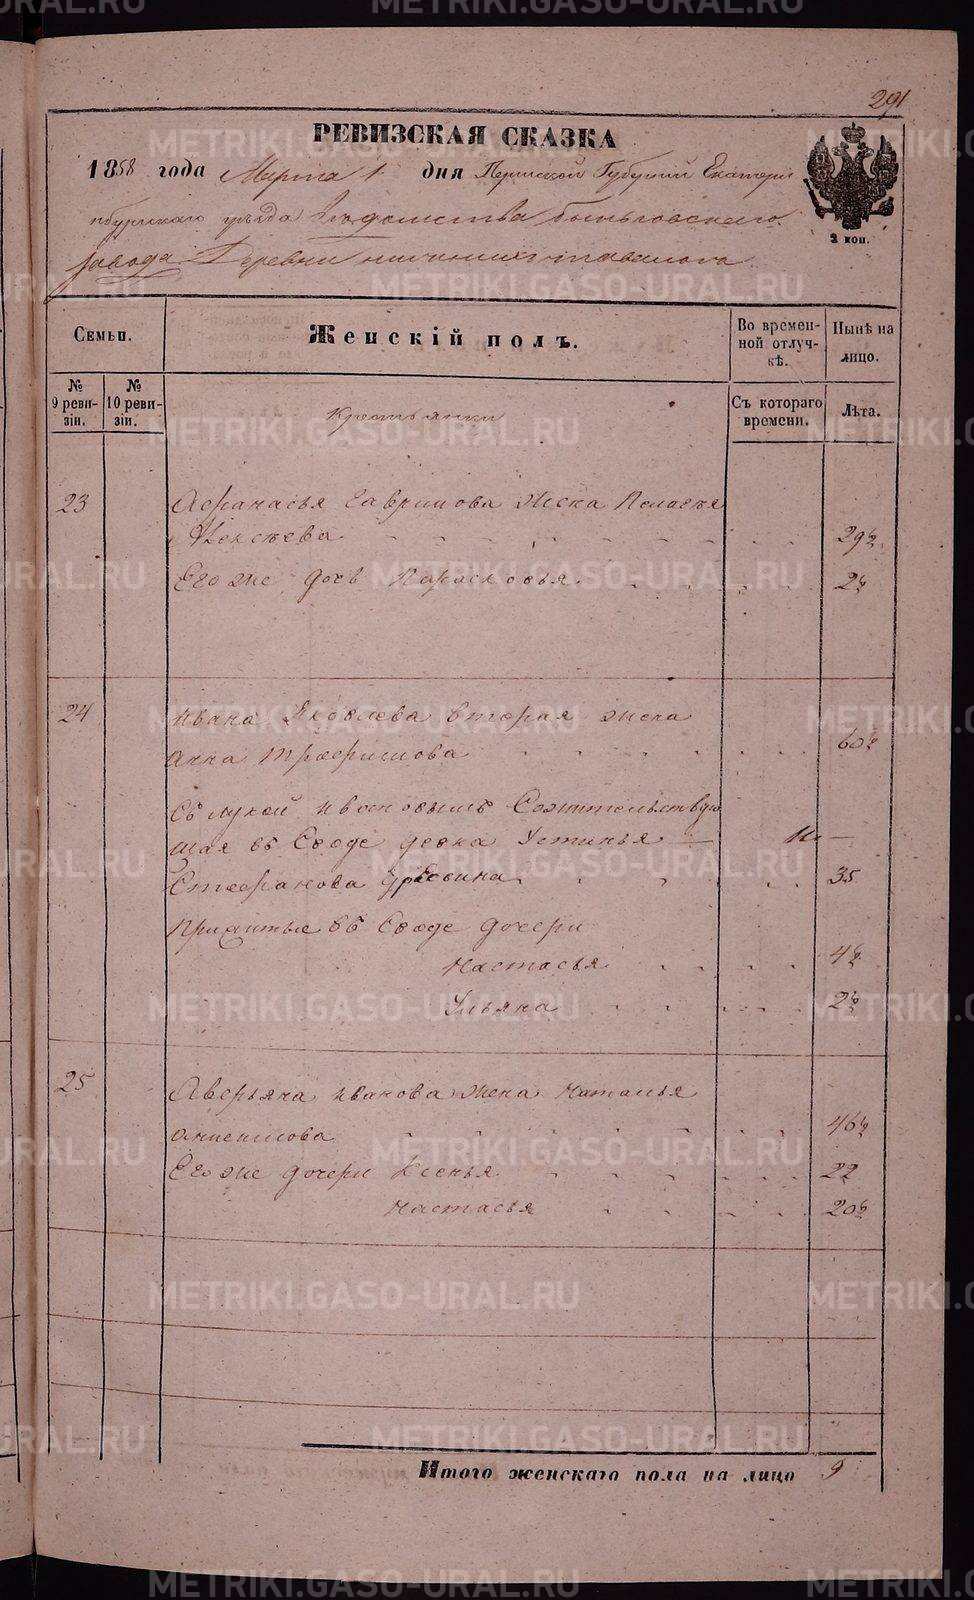 291
РЕВИЗСКАЯ СКАЗКА
1858 года Марта 1 дня Пермской Губернии Екатери
нбургскаго уезда Ведомства Быньговскаго
2 коп.
завода Деревни
Семьи.
Женскій полъ.
Во времен-
ной отлуч-
кѣ.
Нынѣ на
лицо.
№
9 реви-
зіи.
№
10 реви-
зіи.
Съ котораго
времени.
Лѣта.
Крестьянки
23 Афанасья Гаврилова жена Пелагея
Алексѣева 29½
Его же дочь Парасковья 2½
24 Ивана Яковлева вторая жена
Анна Трофимова 60½
Съ Лукой Ивановымъ Сожительствую
щая въ Сводѣ девка Устинья
Стефанова 35
Прижитые въ Сводѣ дочери
Настасья 4½
Ульяна 2½
25 Аверьяна Иванова жена Наталья
Онисимова 46½
Его же дочери Ксенья 22
Настасья 20½
Итого женскаго пола на лицо 9
METRIKI.GASO-URAL.RU